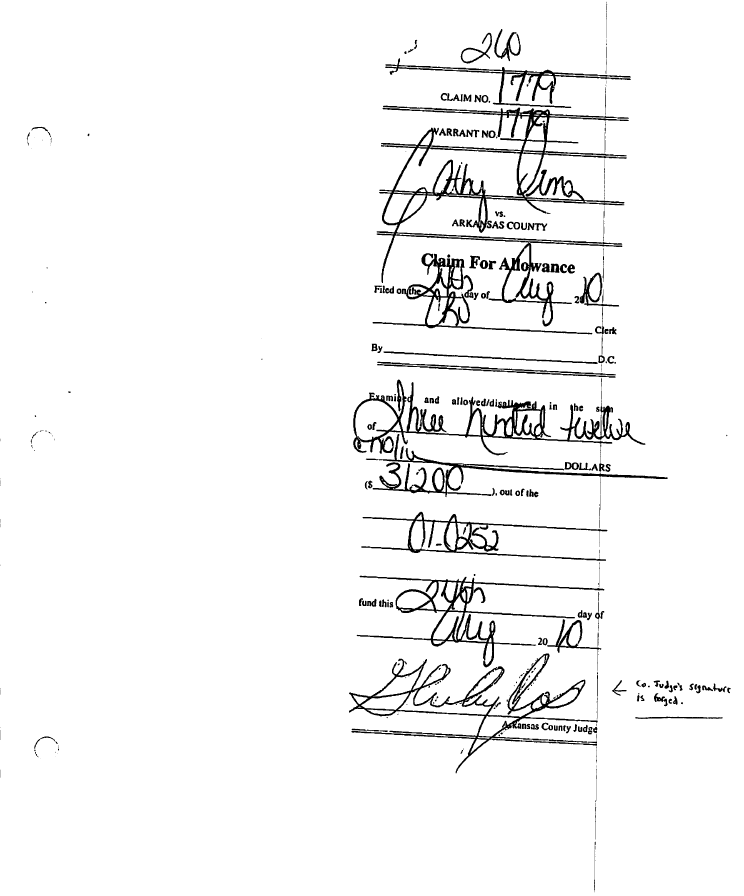 260
CLAIM NO. 1779
WARRANT NO. 1779
Cathy
vs.
ARKANSAS COUNTY
Claim For Allowance
Filed on the 24th day of Aug 2010
Clerk
By D.C.
Examined and allowed/disallowed in the sum
of Three hundred twelve
DOLLARS
($ 31200 ), out of the
01-0252
fund this 24th day of
Aug 20 10
Arkansas County Judge
← Co. Judge's signature
is forged.